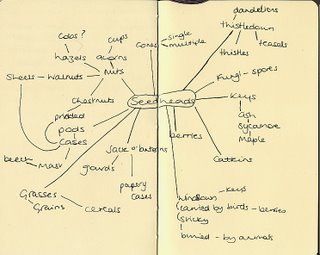 dandelions
thistledown
teasels
thistles
cups
single
multiple
Cones
hazels
acorns
Nuts
Shells - walnuts
Fungi - spores
Chestnuts
Seedheads
Keys
ash
Sycamore
Maple
prickled
pods
cases
berries
Jack o' lanterns
beech
Mast
gourds
Catkins
papery
cases
Grasses
Grains
cereals
windblown - keys
carried by birds - berries
sticky
buried - by animals